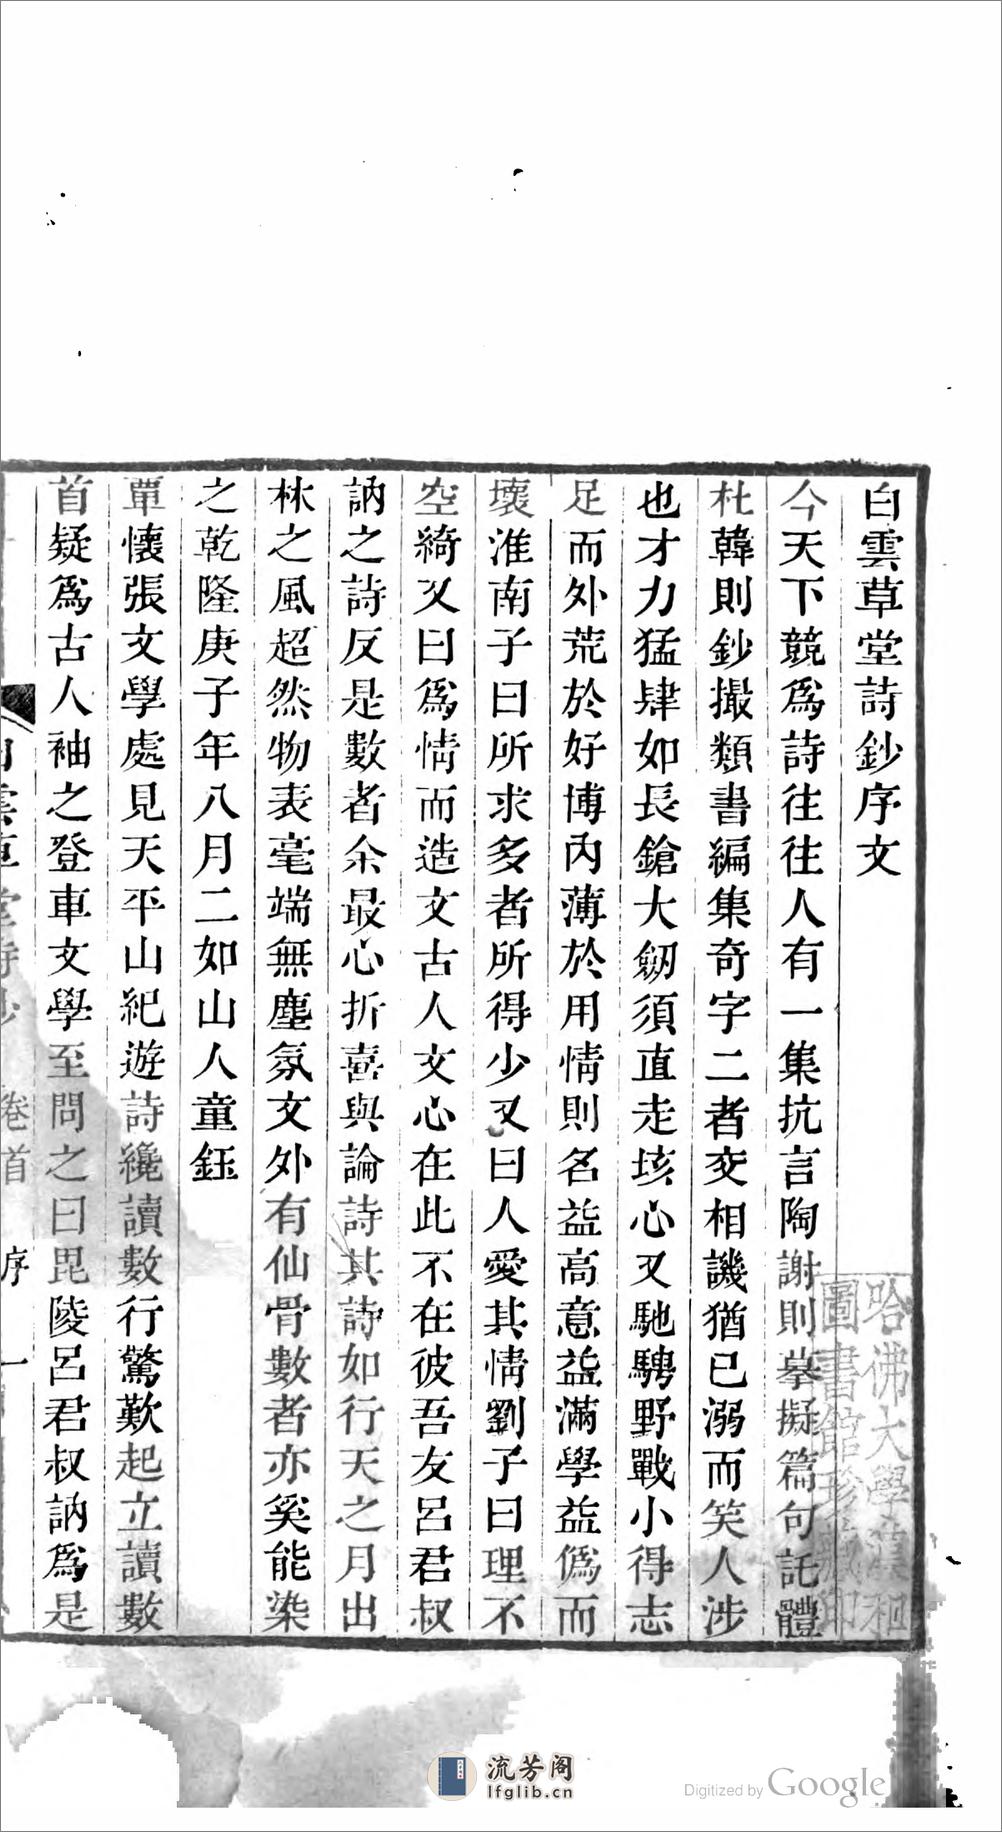 白雲草堂詩鈔序文
今天下競爲詩往往人有一集抗言陶謝則摹擬篇句託體
杜韓則鈔撮類書編集奇字二者交相譏猶已溺而笑人涉
也才力猛肆如長鎗大劒須直走垓心又馳騁野戰小得志
足而外荒於好博內薄於用情則名益高意益滿學益僞而
壞淮南子曰所求多者所得少又曰人愛其情劉子曰理不
空綺又曰爲情而造文古人文心在此不在彼吾友呂君叔
訥之詩反是數者余最心折喜與論詩其詩如行天之月出
林之風超然物表毫端無塵氛文外有仙骨數者亦奚能染
之乾隆庚子年八月二如山人童鈺
覃懷張文學處見天平山紀遊詩纔讀數行驚歎起立讀數
首疑爲古人袖之登車文學至問之曰毘陵呂君叔訥爲是
卷首
序
一
哈佛大學漢和
圖書館珍藏印
流芳阁
lfglib.cn
Digitized by Google